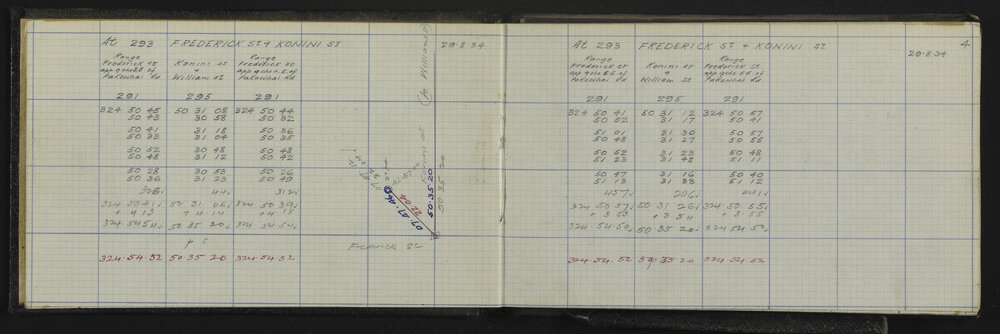 At 293 FREDERICK ST + KONINI ST 29·8·34
Range Frederick St app 9 chs S.E of Pakowhai Rd
Konini St + William St
Range Frederick St app 9 chs S.E of Pakowhai Rd
291 295 291
324 50 45 50 31 08 324 50 44
50 43 30 58 50 32
50 41 31 18 50 36
50 33 31 04 50 35
50 52 30 48 50 48
50 48 31 12 50 42
50 28 30 53 50 26
50 36 31 23 50 49
326 44 312
324 50 41 50 31 06 324 50 39
+ 4 13 + 4 14 + 4·15
324 54 54 50 35 20 324 54 54
p s
324·54·52 50·35 20 324·54·52
William St
Konini St
50 35 20
50·35·20
22·04
Frederick St
4
At 293 FREDERICK ST + KONINI ST 29·8·34
Range Frederick St app 9 chs S.E of Pakowhai Rd
Konini St + William St
Range Frederick St app 9 chs S.E of Pakowhai Rd
291 295 291
324 50 41 50 31 12 324 50 57
50 52 31 17 50 41
51 01 31 30 50 57
50 48 31 27 50 55
50 52 31 23 50 48
51 23 31 48 51 11
50 47 31 16 50 40
51 13 31 33 51 12
457 206 441
324 50 57 50 31 26 324 50 55
+ 3 53 + 3 54 + 3·55
324 54·50 50·35 20 324 54 50
324·54·52 50·35·20 324·54·52